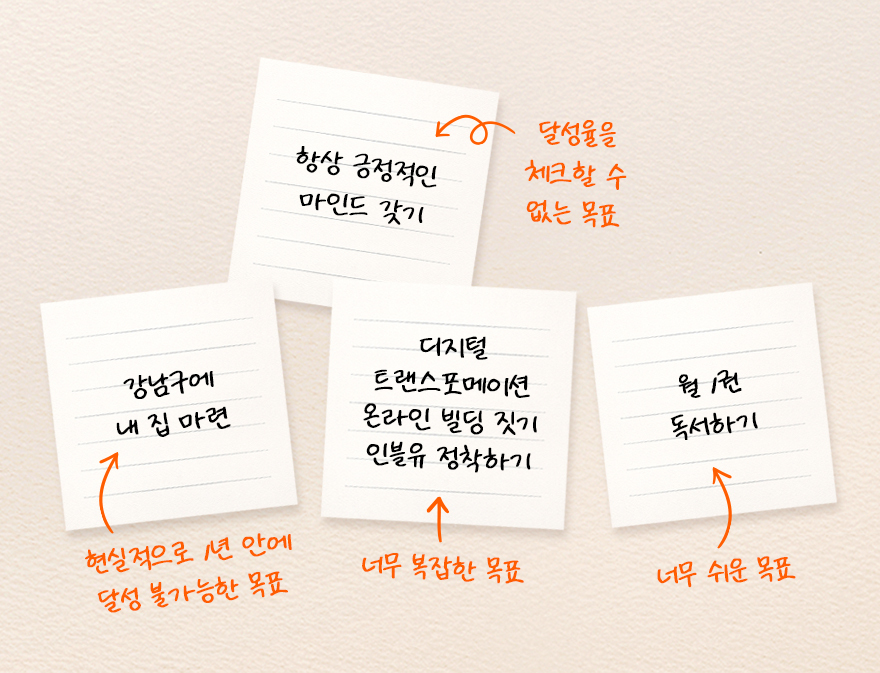 항상 긍정적인
마인드 갖기
달성율을
체크할 수
없는 목표
강남구에
내 집 마련
현실적으로 1년 안에
달성 불가능한 목표
디지털
트랜스포메이션
온라인 빌딩 짓기
인블유 정착하기
너무 복잡한 목표
월 1권
독서하기
너무 쉬운 목표